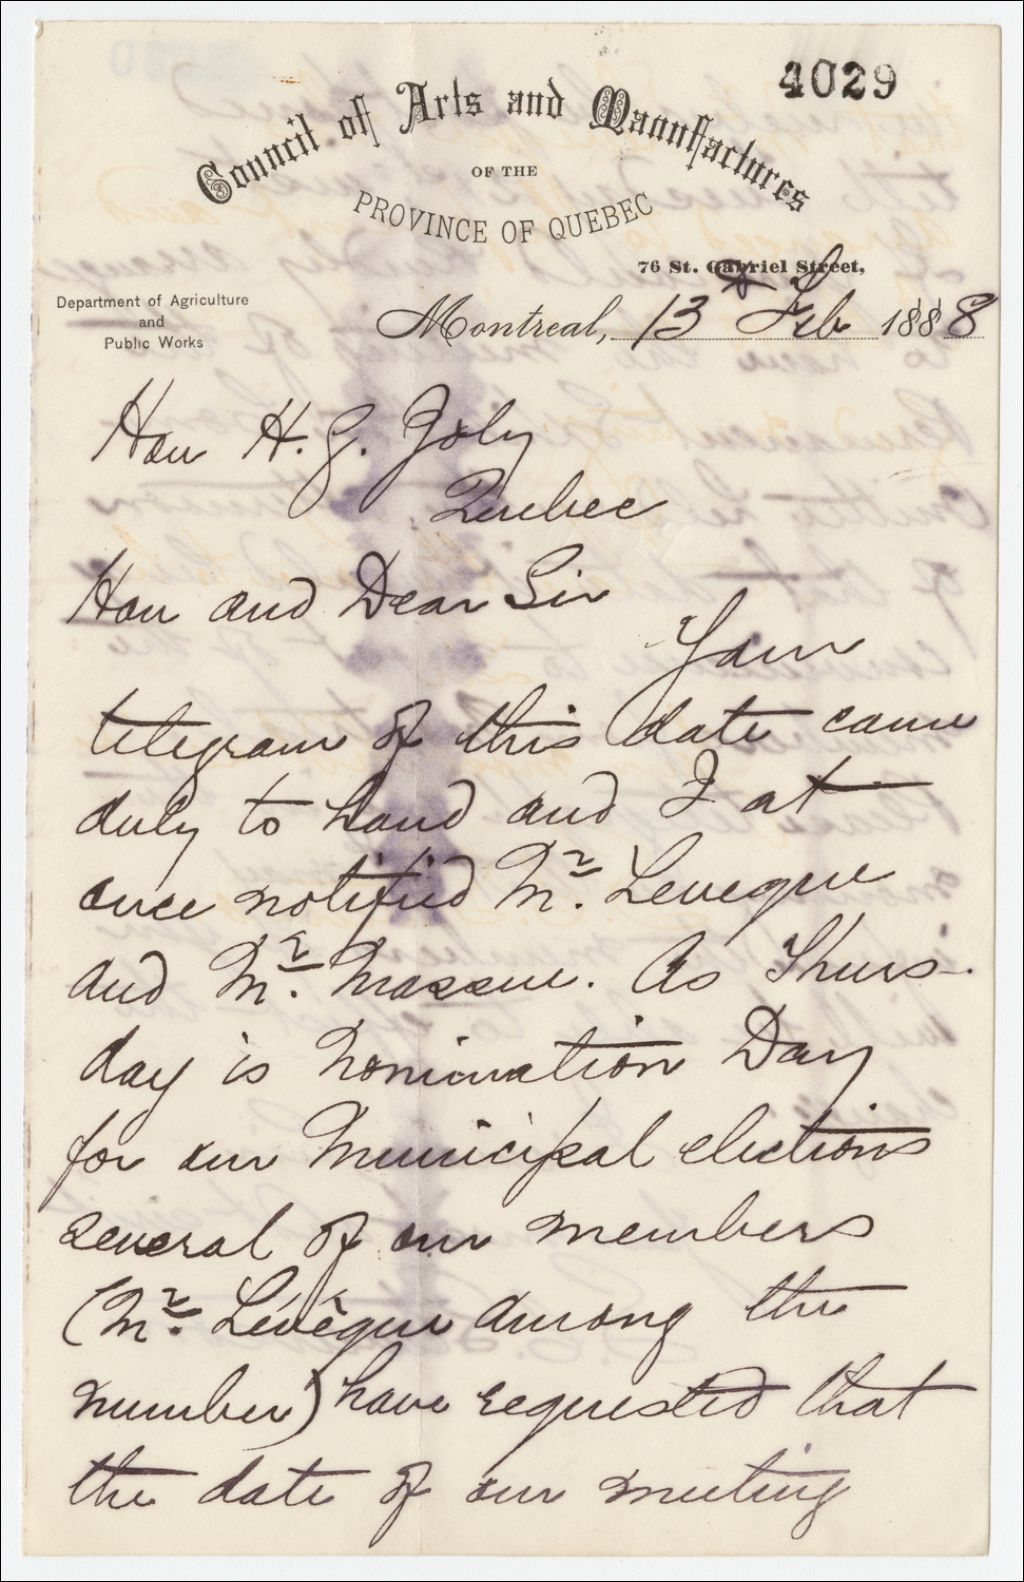 4029
Council of Arts and Manufactures
OF THE
PROVINCE OF QUEBEC
76 St. Gabriel Street,
Department of Agriculture
and
Public Works
Montreal, 13 Feb 1888
Hon H. G. Joly
Quebec
Hon and Dear Sir
Your
telegram of this date came
duly to hand and I at
once notified Mr. Leveque
and Mr. Massue. As Thurs-
day is Nomination Day
for our Municipal elections
several of our members
(Mr. Lévèque among the
number) have requested that
the date of our meeting